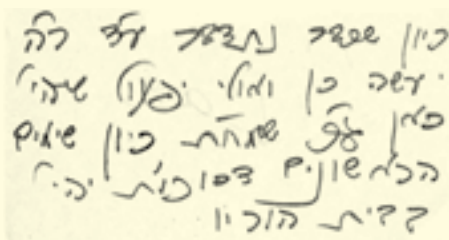 כיון שכבר נתדבר על ר"ה
יעשה כן ואולי יפעול שיהי'
כאן עכ"פ שמח"ת כיון שימים
הראשונים דסוכות יהי'
בבית הוריו